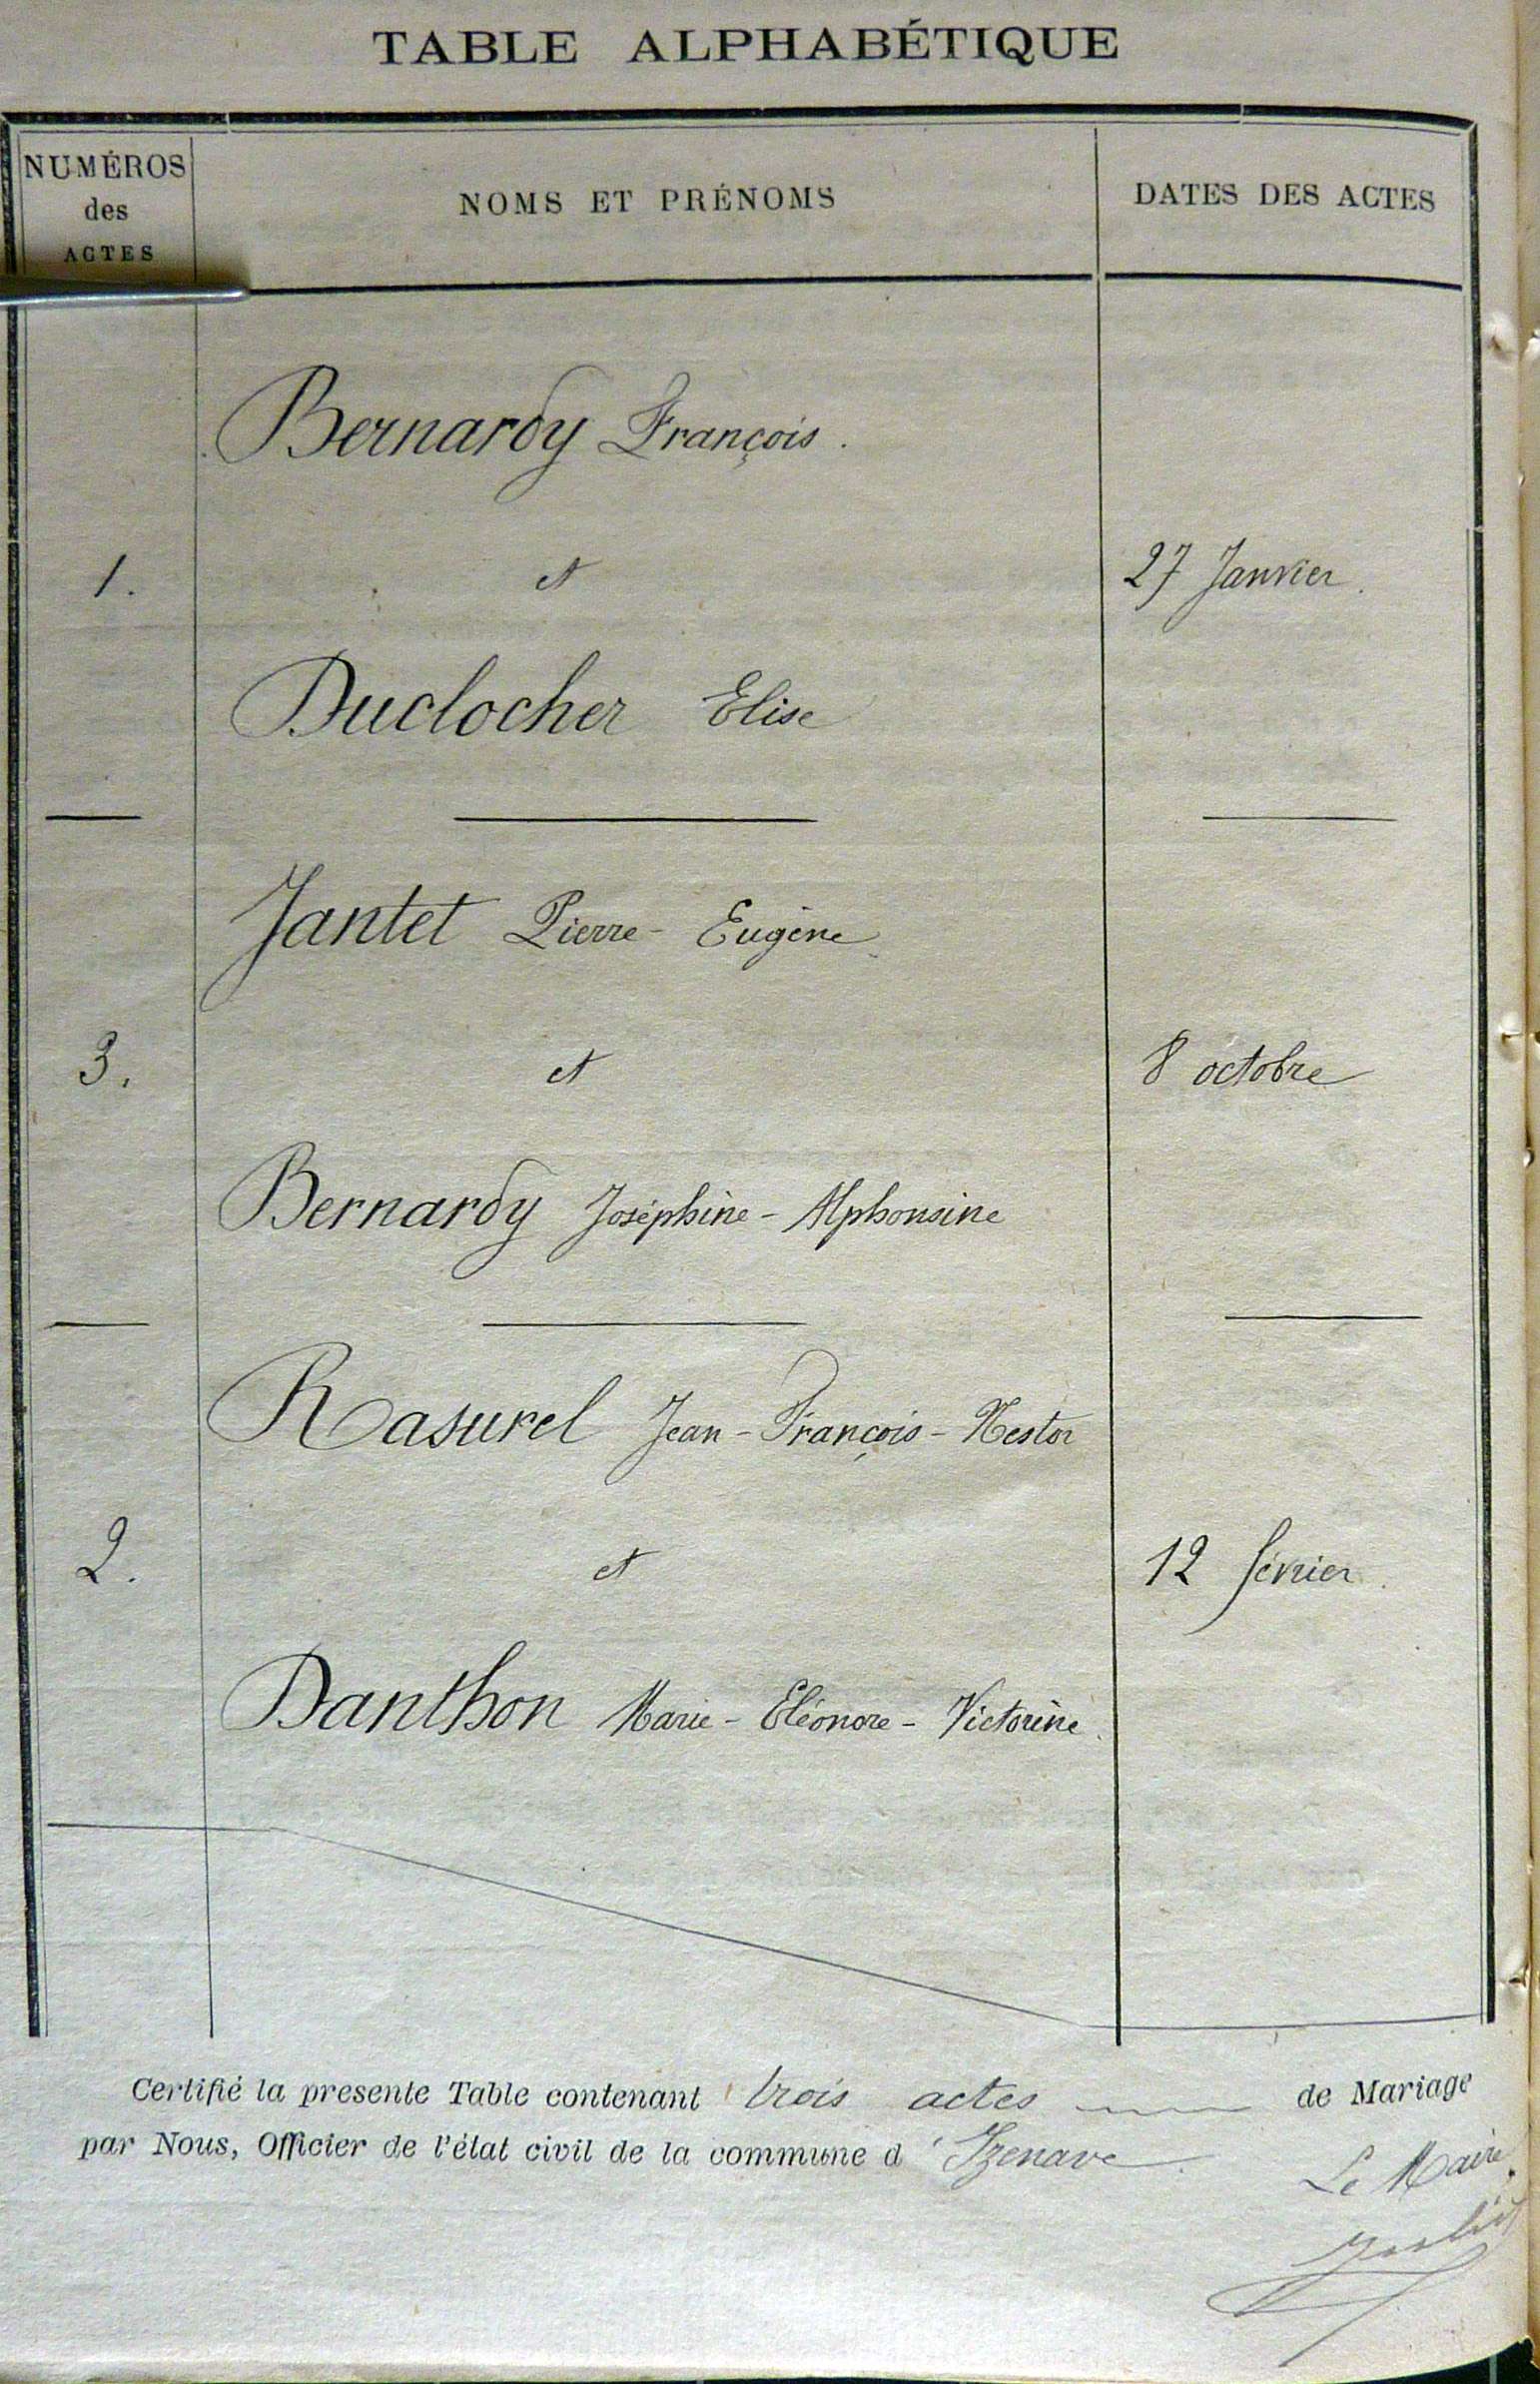 TABLE ALPHABÉTIQUE
NUMÉROS
des
ACTES
NOMS ET PRÉNOMS
DATES DES ACTES
Bernardy François.
1. et 27 Janvier.
Duclocher Elise
Jantet Pierre-Eugène
3. et 8 octobre
Bernardy Joséphine-Alphonsine
Rasurel Jean-François-Nestor
2. et 12 février
Danthon Marie-Eléonore-Victorine
Certifié la presente Table contenant trois actes de Mariage
par Nous, Officier de l'état civil de la commune d'Izenave.
Le Maire,